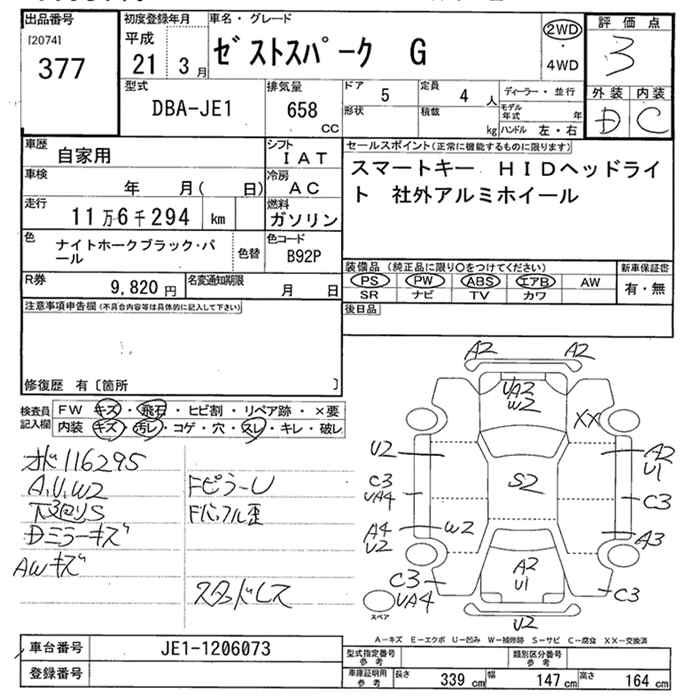 出品番号
[2074]
377
初度登録年月
平成
21 3月
車名・グレード
ゼストスパーク G
2WD
・
4WD
評価点
3
外装 内装
D C
型式
DBA-JE1
排気量
658
cc
ドア
5
定員
4人
形状
積載
kg
ディーラー・並行
モデル年式 年
ハンドル 左・右
車歴
自家用
シフト
IAT
車検
年 月( 日)
冷房
AC
走行
11万6千294 km
燃料
ガソリン
色
ナイトホークブラック・パール
色替
色コード
B92P
R券
9,820円
名変通知期限
月 日
セールスポイント(正常に機能するものに限ります)
スマートキー HIDヘッドライ
ト 社外アルミホイール
装備品(純正品に限り○をつけてください)
PS PW ABS エアB AW
SR ナビ TV カワ
新車保証書
有・無
後日品
注意事項申告欄(不具合内容等は具体的に記入して下さい)
修復歴 有〔箇所 〕
検査員
記入欄
FW キズ・飛石・ヒビ割・リペア跡・×要
内装 キズ・汚レ・コゲ・穴・スレ・キレ・破レ
116295
A,U,W2
下廻りS
Dミラーキズ
AWキズ
FピラーU
スタッドレス
A2 A2
UA2
W2
XX
U2
A2
U1
S2
C3
UA4
C3
A4
U2
W2
A3
A2
U1
C3
UA4
C3
U2
スペア
A-キズ E-エクボ U-凹み W-補修跡 S-サビ C-腐食 XX-交換済
車台番号
JE1-1206073
登録番号
型式指定番号
参考
類別区分番号
参考
車庫証明用
参考
長さ 339 cm 幅 147 cm 高さ 164 cm